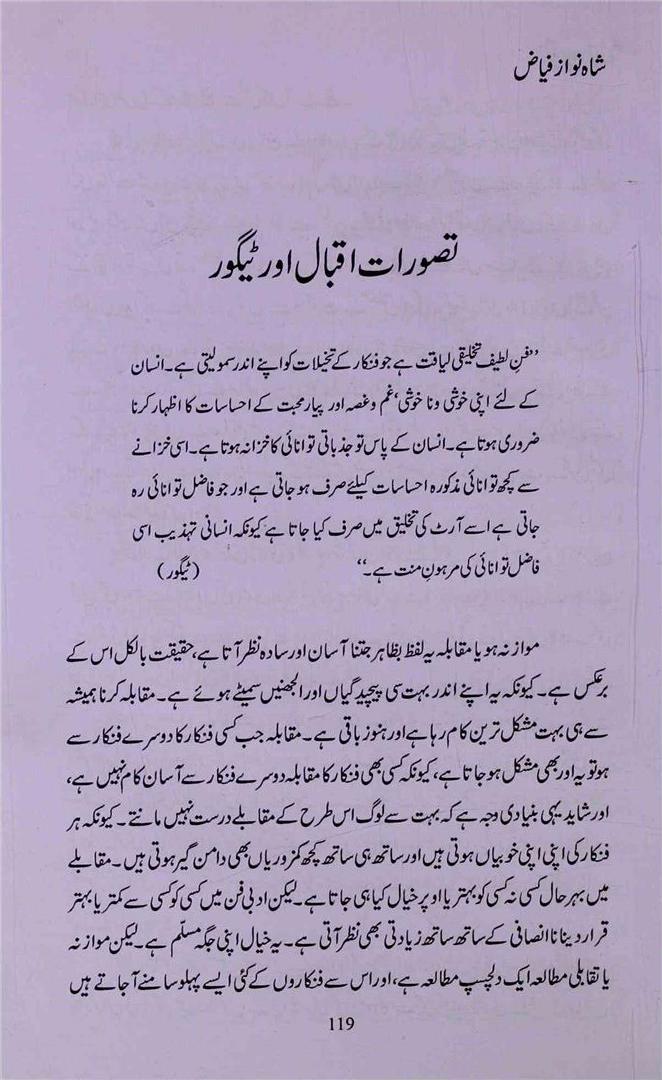 شاہ نواز فیاض
تصورات اقبال اور ٹیگور
”فنِ لطیف تخلیقی لیاقت ہے جو فنکار کے تخیلات کو اپنے اندر سمو لیتی ہے۔ انسان
کے لئے اپنی خوشی و ناخوشی‘ غم و غصہ اور پیار محبت کے احساسات کا اظہار کرنا
ضروری ہوتا ہے۔ انسان کے پاس تو جذباتی توانائی کا خزانہ ہوتا ہے۔ اسی خزانے
سے کچھ توانائی مذکورہ احساسات کیلئے صرف ہو جاتی ہے اور جو فاضل توانائی رہ
جاتی ہے اسے آرٹ کی تخلیق میں صرف کیا جاتا ہے کیونکہ انسانی تہذیب اسی
فاضل توانائی کی مرہونِ منت ہے۔“ (ٹیگور)
موازنہ ہو یا مقابلہ یہ لفظ بظاہر جتنا آسان اور سادہ نظر آتا ہے، حقیقت بالکل اس کے
برعکس ہے۔ کیونکہ یہ اپنے اندر بہت سی پیچیدگیاں اور الجھنیں سمیٹے ہوئے ہے۔ مقابلہ کرنا ہمیشہ
سے ہی بہت مشکل ترین کام رہا ہے اور ہنوز باقی ہے۔ مقابلہ جب کسی فنکار کا دوسرے فنکار سے
ہو تو یہ اور بھی مشکل ہو جاتا ہے، کیونکہ کسی بھی فنکار کا مقابلہ دوسرے فنکار سے آسان کام نہیں ہے،
اور شاید یہی بنیادی وجہ ہے کہ بہت سے لوگ اس طرح کے مقابلے درست نہیں مانتے۔ کیونکہ ہر
فنکار کی اپنی اپنی خوبیاں ہوتی ہیں اور ساتھ ہی ساتھ کچھ کمزوریاں بھی دامن گیر ہوتی ہیں۔ مقابلے
میں بہر حال کسی نہ کسی کو بہتر یا اوپر خیال کیا ہی جاتا ہے۔ لیکن ادبی فن میں کسی کو کسی سے کمتر یا بہتر
قرار دینا ناانصافی کے ساتھ ساتھ زیادتی بھی نظر آتی ہے۔ یہ خیال اپنی جگہ مسلّم ہے۔ لیکن موازنہ
یا تقابلی مطالعہ ایک دلچسپ مطالعہ ہے، اور اس سے فنکاروں کے کئی ایسے پہلو سامنے آ جاتے ہیں
119